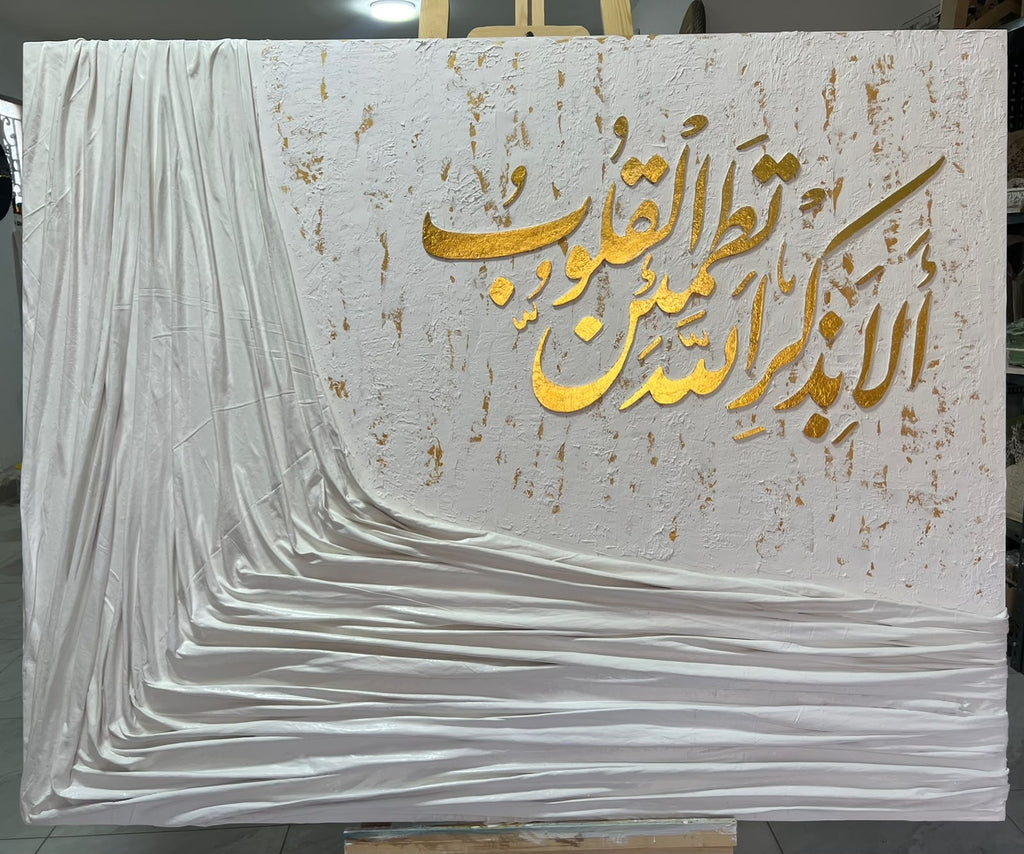 ألَا بِذِكرِ اللهِ تَطمَئِنُّ القُلُوبُ